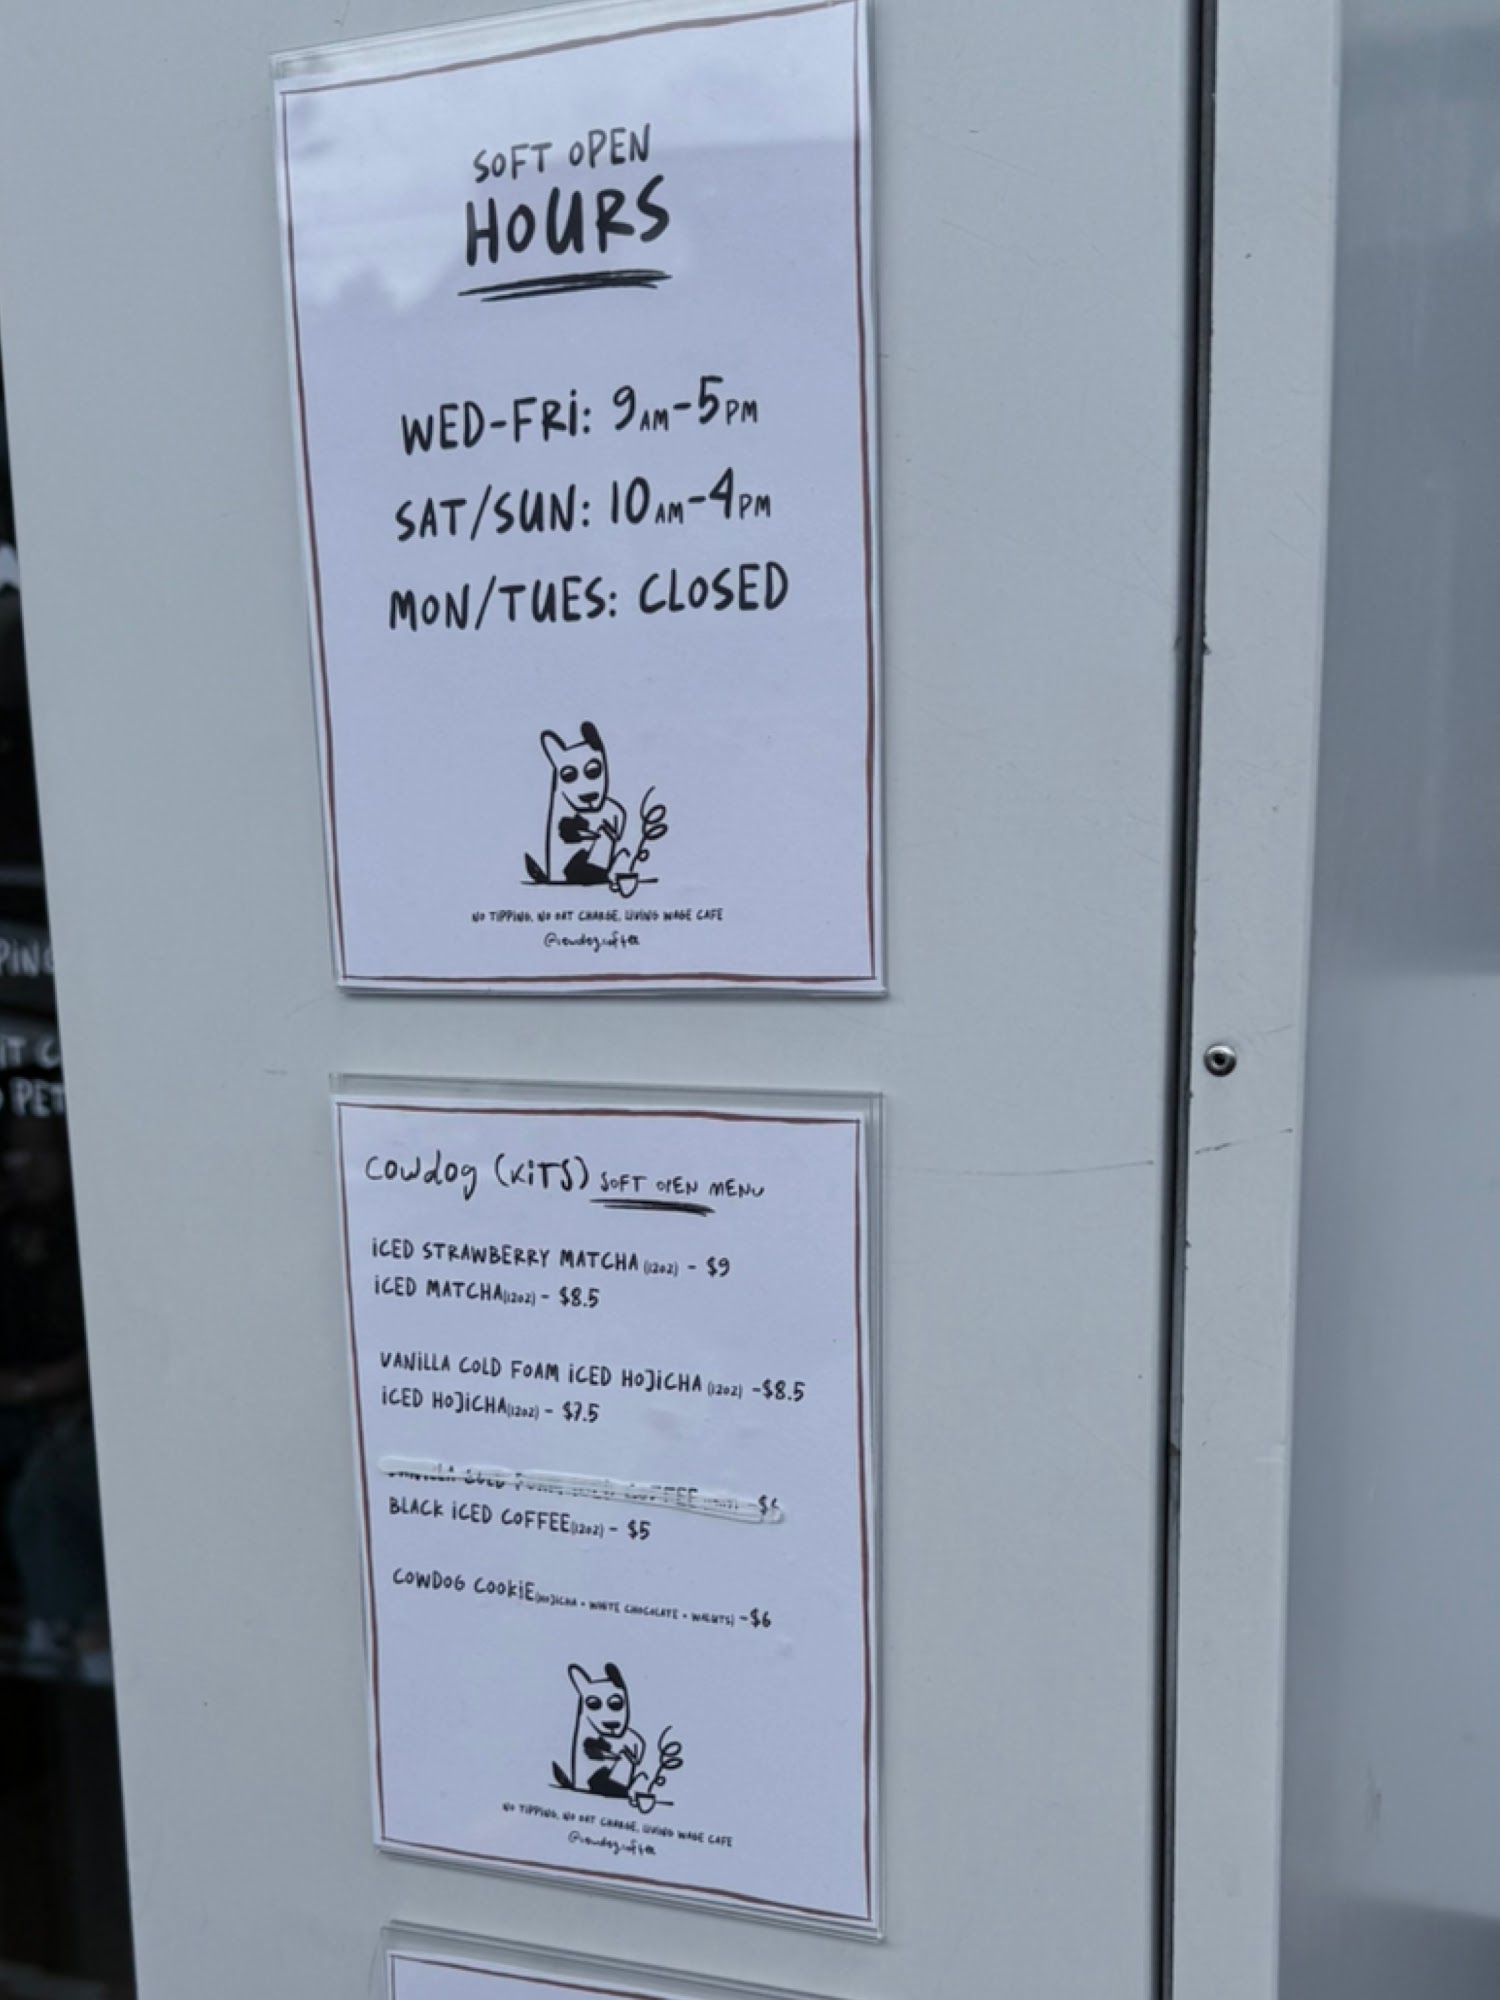 SOFT OPEN
HOURS
WED-FRi: 9AM-5PM
SAT/SUN: 10AM-4PM
MON/TUES: CLOSED
NO TIPPING, NO OAT CHARGE, LIVING WAGE CAFE
@cowdog.coffee
PING
iT C
PET
cowdog (KiTS) SOFT OPEN MENU
iCED STRAWBERRY MATCHA (12oz) - $9
iCED MATCHA(12oz) - $8.5
VANiLLA COLD FOAM iCED HOJiCHA (12oz) -$8.5
iCED HOJiCHA(12oz) - $7.5
VANiLLA COLD FOAM iCED COFFEE (12oz) -$6
BLACK iCED COFFEE(12oz) - $5
COWDOG COOKiE(HOJICHA + WHITE CHOCOLATE + WALNUTS) -$6
NO TIPPING, NO OAT CHARGE, LIVING WAGE CAFE
@cowdog.coffee